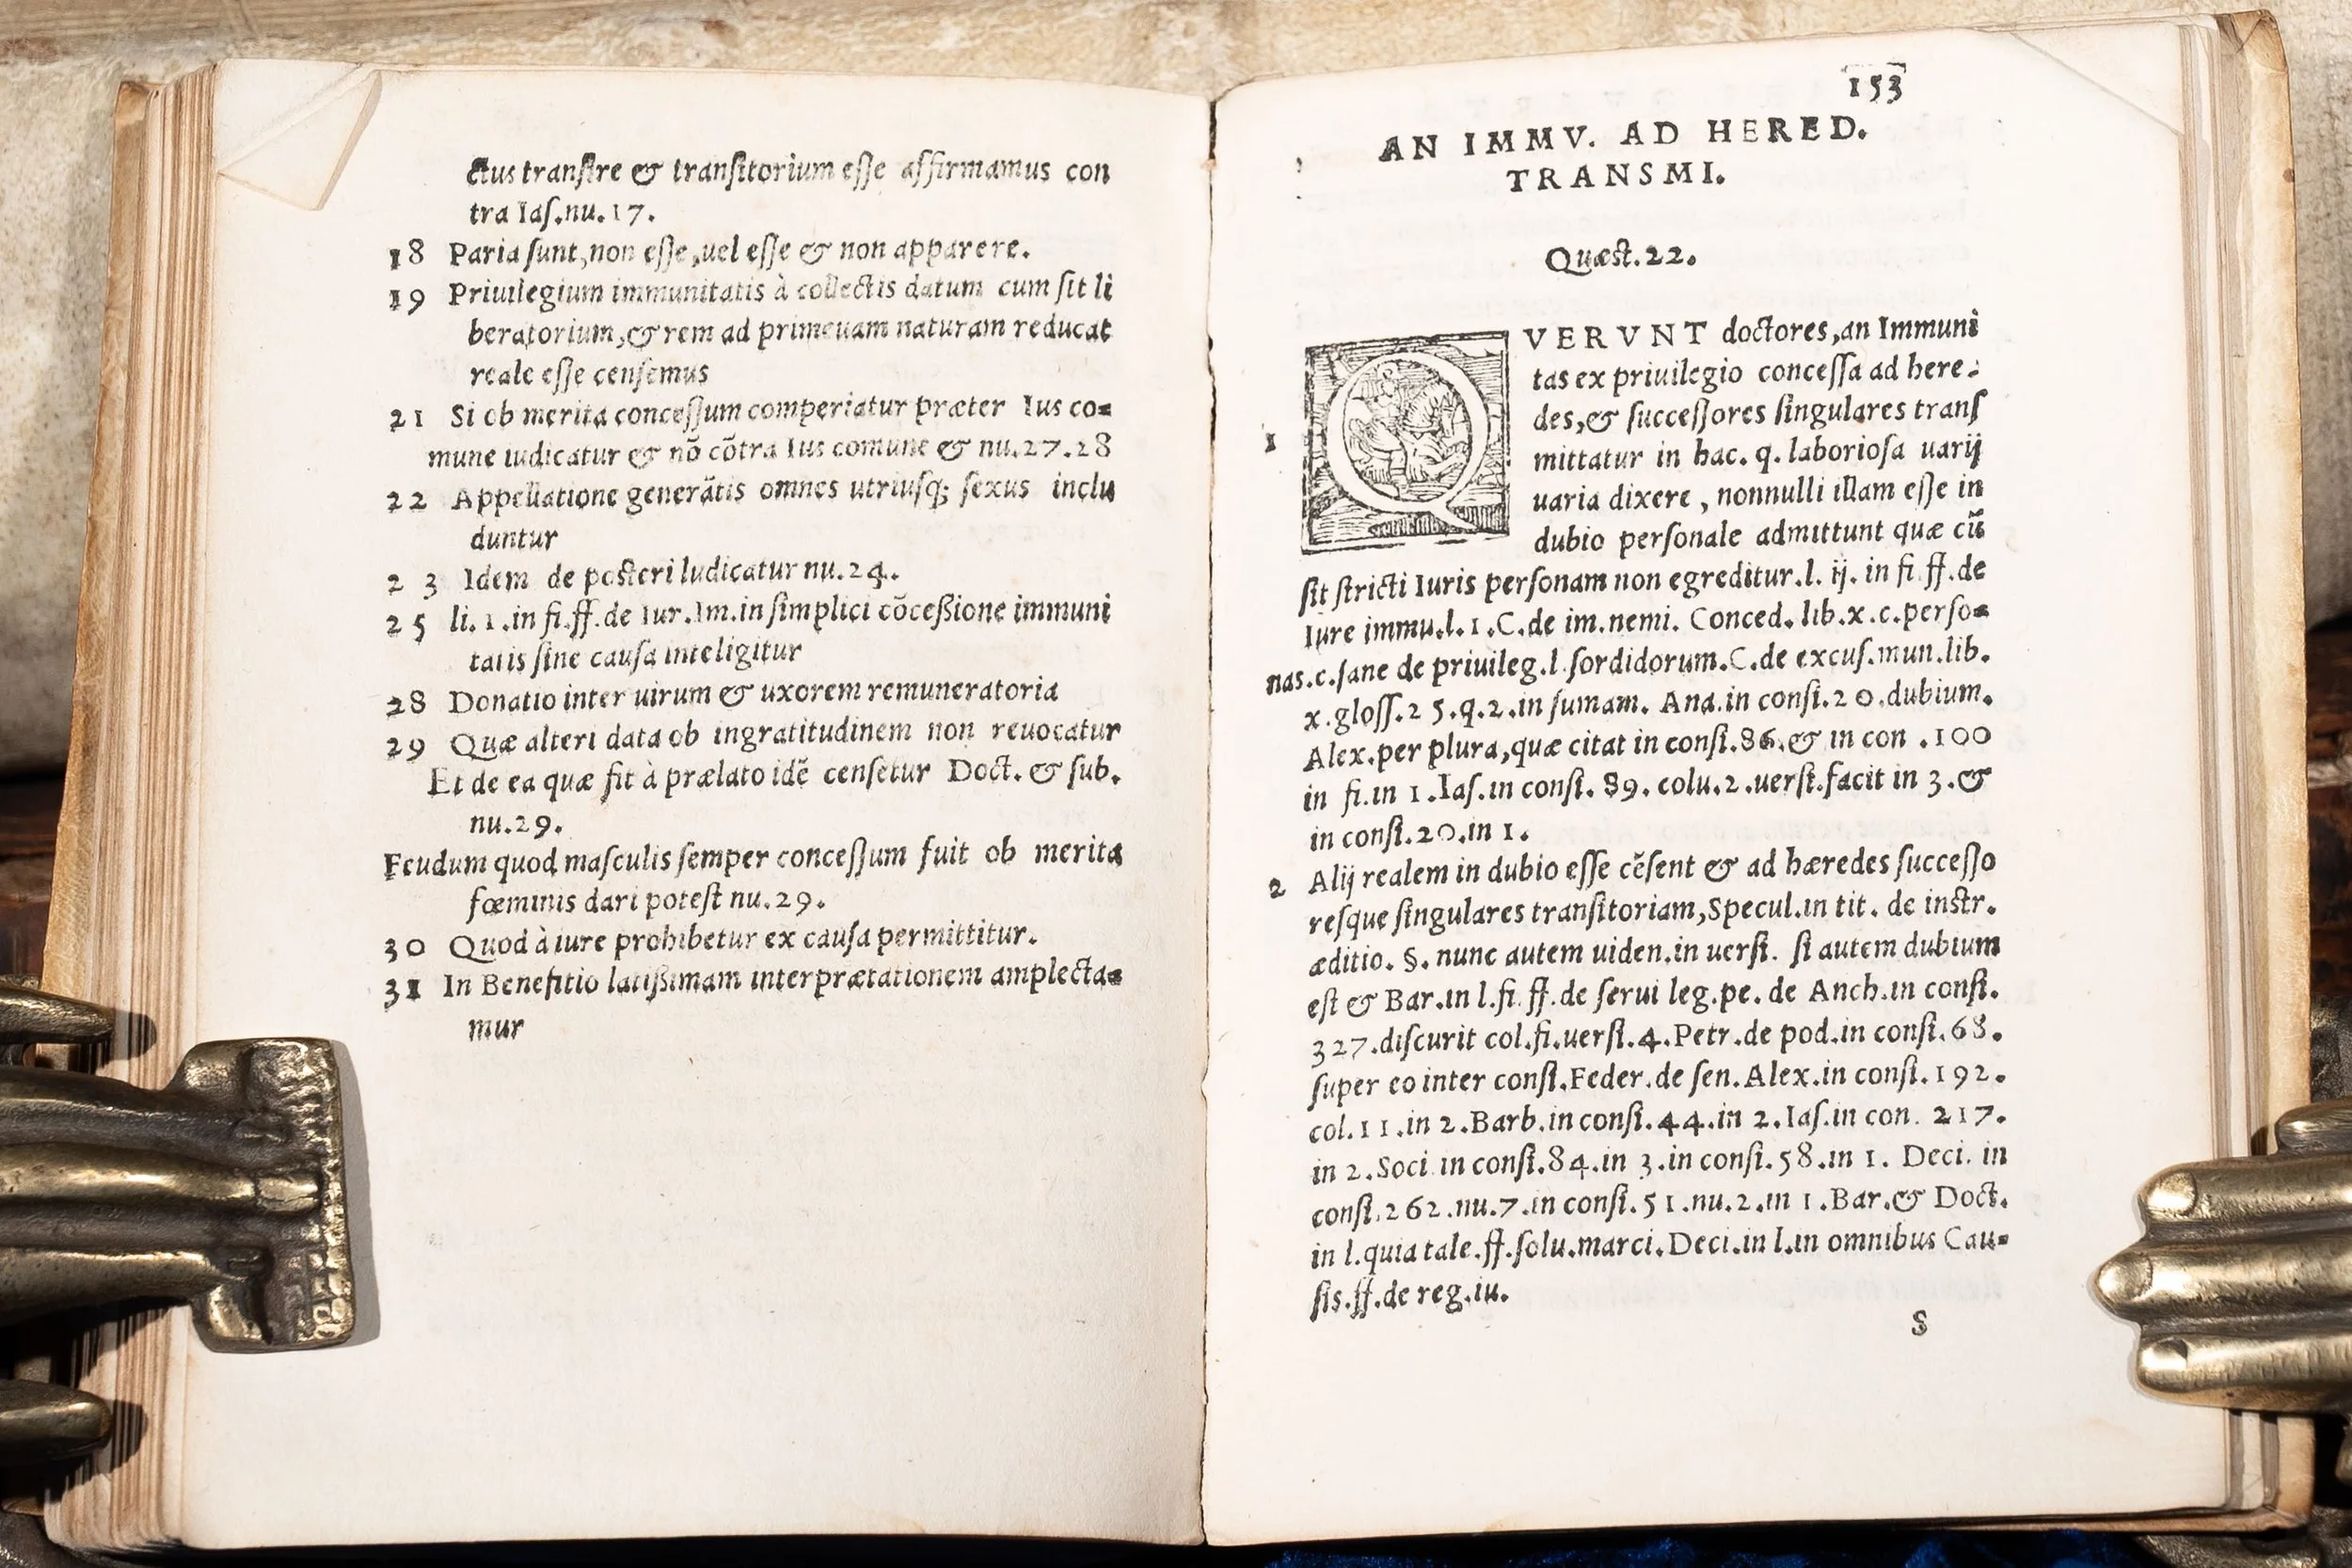 ctus transire & transitorium esse affirmamus con
tra Ias.nu.17.
18 Paria sunt,non esse,uel esse & non apparere.
19 Priuilegium immunitatis à collectis datum cum sit li
beratorium,& rem ad primeuam naturam reducat
reale esse censemus
21 Si ob merita concessum comperiatur præter Ius co=
mune iudicatur & nõ cõtra Ius comune & nu.27.28
22 Appellatione generãtis omnes utriusq; sexus inclu
duntur
2 3 Idem de posteri Iudicatur nu.24.
25 li.1.in fi.ff.de Iur.Im.in simplici cõceßione immuni
tatis sine causa inteligitur
28 Donatio inter uirum & uxorem remuneratoria
29 Quæ alteri data ob ingratitudinem non reuocatur
Et de ea quæ fit à prælato idẽ censetur Doct. & sub.
nu.29.
Feudum quod masculis semper concessum fuit ob merita
fœminis dari potest nu.29.
30 Quod à iure prohibetur ex causa permittitur.
31 In Benefitio latißimam interprætationem amplecta=
mur
153
AN IMMV. AD HERED.
TRANSMI.
Quæst.22.
QVERVNT doctores,an Immuni
tas ex priuilegio concessa ad here=
des,& successores singulares trans
1 mittatur in hac. q. laboriosa uarij
uaria dixere , nonnulli illam esse in
dubio personale admittunt quæ cũ
sit stricti Iuris personam non egreditur.l. ij. in fi.ff.de
Iure immu.l.1.C.de im.nemi. Conced. lib.x.c.perso=
nas.c.sane de priuileg.l.sordidorum.C.de excus.mun.lib.
x.gloss.25.q.2.in sumam. Ana.in consi.20.dubium.
Alex.per plura,quæ citat in consi.86.& in con .100
in fi.in 1.Ias.in consi. 89. colu.2.uersi.facit in 3.&
in consi.20.in 1.
2 Alij realem in dubio esse cẽsent & ad hæredes successo
resque singulares transitoriam,Specul.in tit. de instr.
æditio. §. nunc autem uiden.in uersi. si autem dubium
est & Bar.in l.fi.ff.de serui leg.pe. de Anch.in consi.
327.discurit col.fi.uersi.4.Petr.de pod.in consi.68.
super eo inter consi.Feder.de sen.Alex.in consi.192.
col.11.in 2.Barb.in consi.44.in 2.Ias.in con. 217.
in 2.Soci.in consi.84.in 3.in consi.58.in 1. Deci. in
consi.262.nu.7.in consi.51.nu.2.in 1.Bar.& Doct.
in l.quia tale.ff.solu.marci.Deci.in l.in omnibus Cau=
sis.ff.de reg.iu.
S